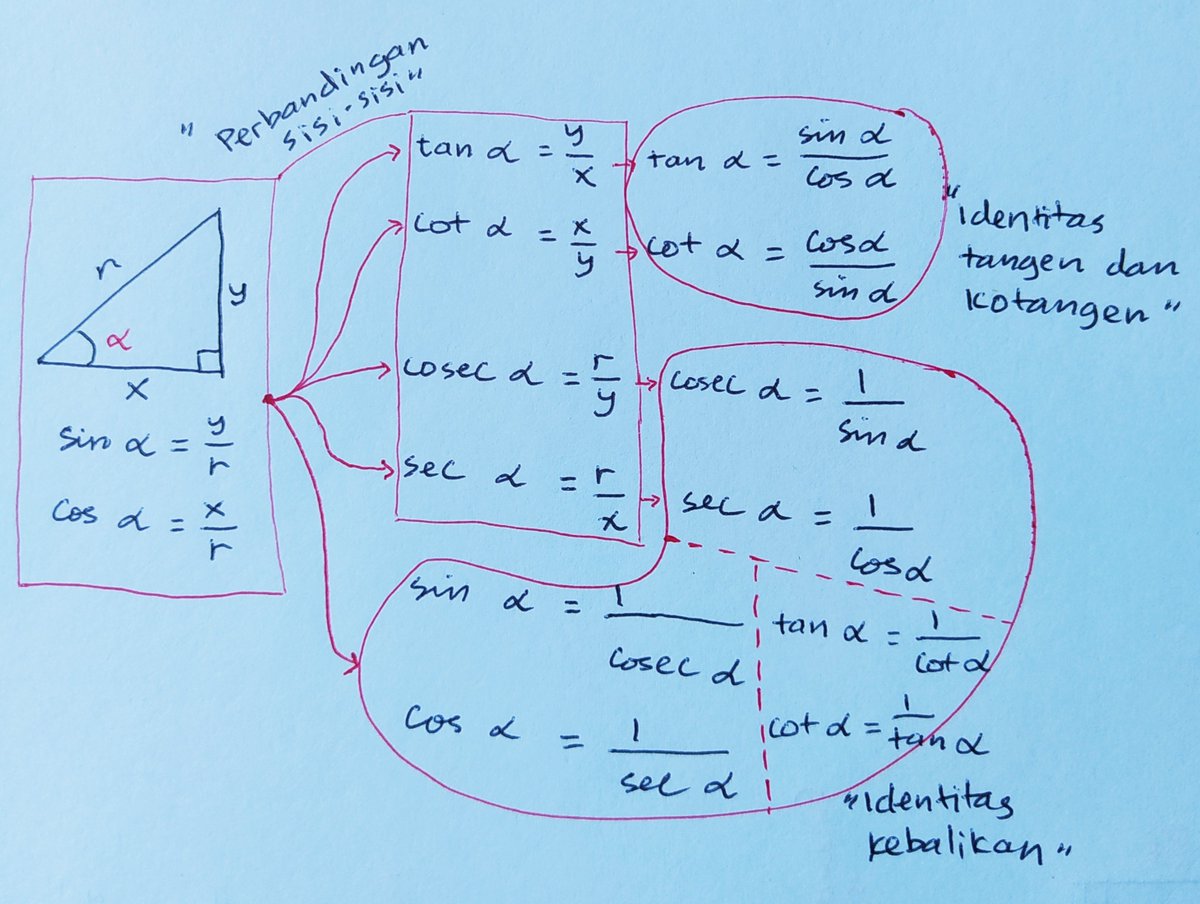 "Perbandingan
sisi-sisi"
r
y
α
x
sin α = y/r
cos α = x/r
tan α = y/x
cot α = x/y
cosec α = r/y
sec α = r/x
tan α = sin α/cos α
cot α = cos α/sin α
"Identitas
tangen dan
kotangen"
cosec α = 1/sin α
sec α = 1/cos α
sin α = 1/cosec α
cos α = 1/sec α
tan α = 1/cot α
cot α = 1/tan α
"Identitas
kebalikan"